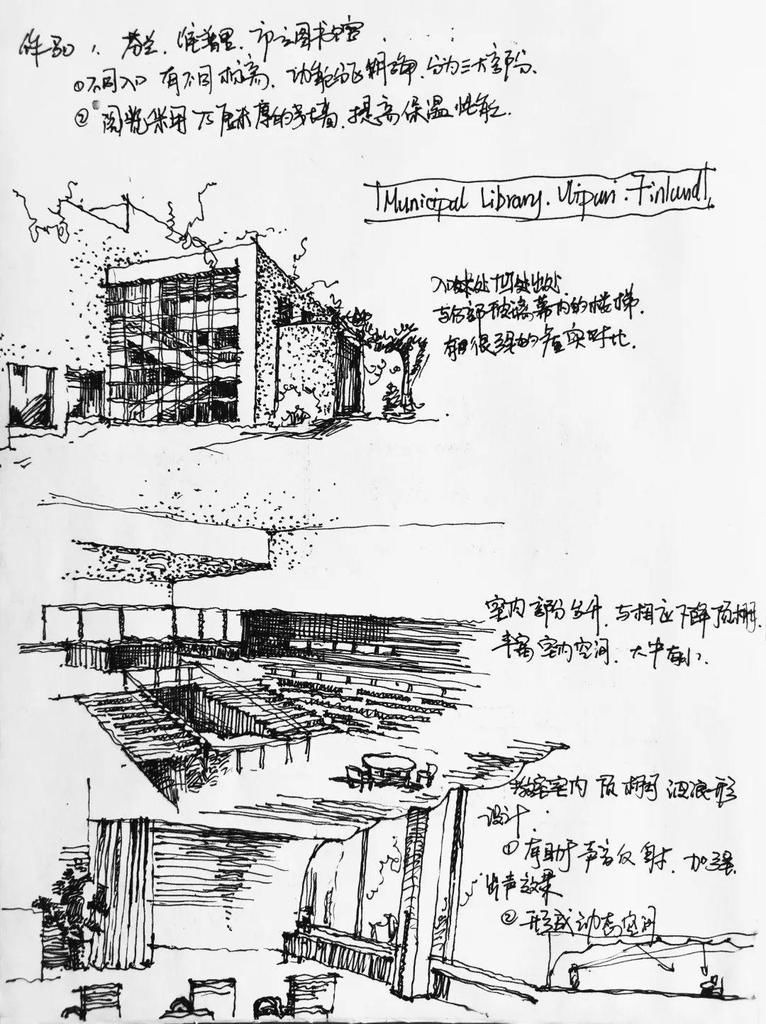 1. 芬兰. 维普里. 市立图书馆
①不同入口 有不同标高. 功能分区明确. 分为三大部分.
② 阅览采用 75厘米厚的 墙. 提高保温性能.
Municipal Library. Viipuri. Finland
入口 处凹处
与 玻璃幕内的楼梯.
有很强的虚实对比.
室内部分 升. 与相应下降顶棚.
丰富室内空间. 大中有小.
室内 顶棚 波浪形
设计.
① 有助于声音反射. 加强
声效果
② 形成动态空间